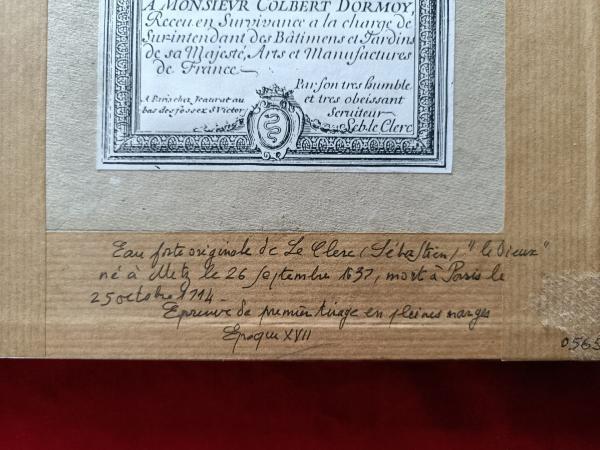 A MONSIEVR COLBERT DORMOY,
Receu en Survivance a la charge de
Surintendant des Bâtimens et Jardins
de sa Majesté, Arts et Manufactures
de France.
Par son tres humble
et tres obeissant
Serviteur
Seb. le Clerc
A Paris chez Jeaurat au
bas des fossez S. Victor
Eau forte originale de Le Clerc (Sébastien) "le Vieux"
né à Metz le 26 septembre 1637, mort à Paris le
25 octobre 1714 -
Epreuve de premier tirage en pleines marges
Epoque XVII
0565